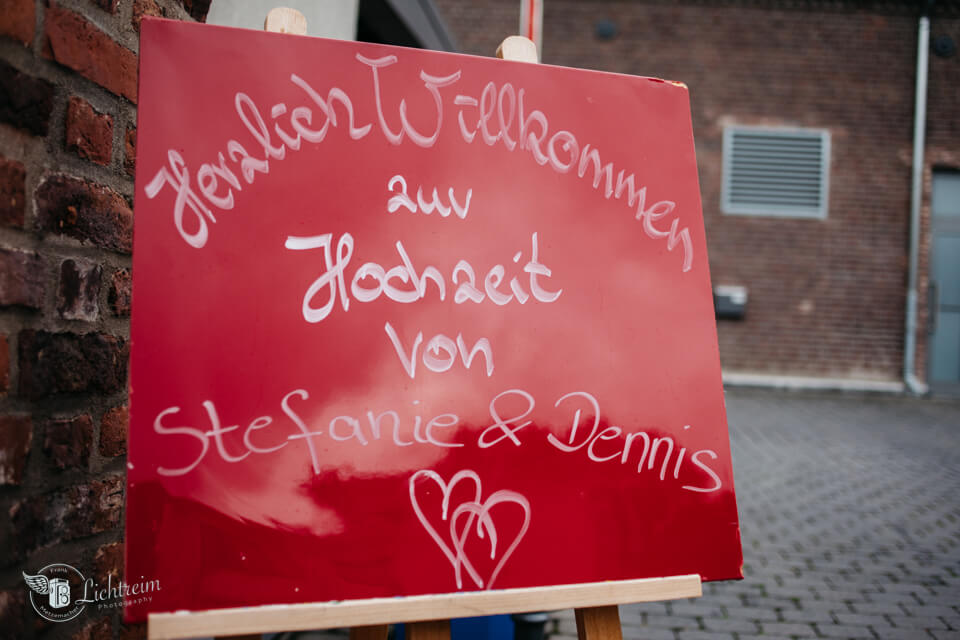 Herzlich Willkommen
zur
Hochzeit
von
Stefanie & Dennis
Frank
Metzemacher
Lichtreim
Photography